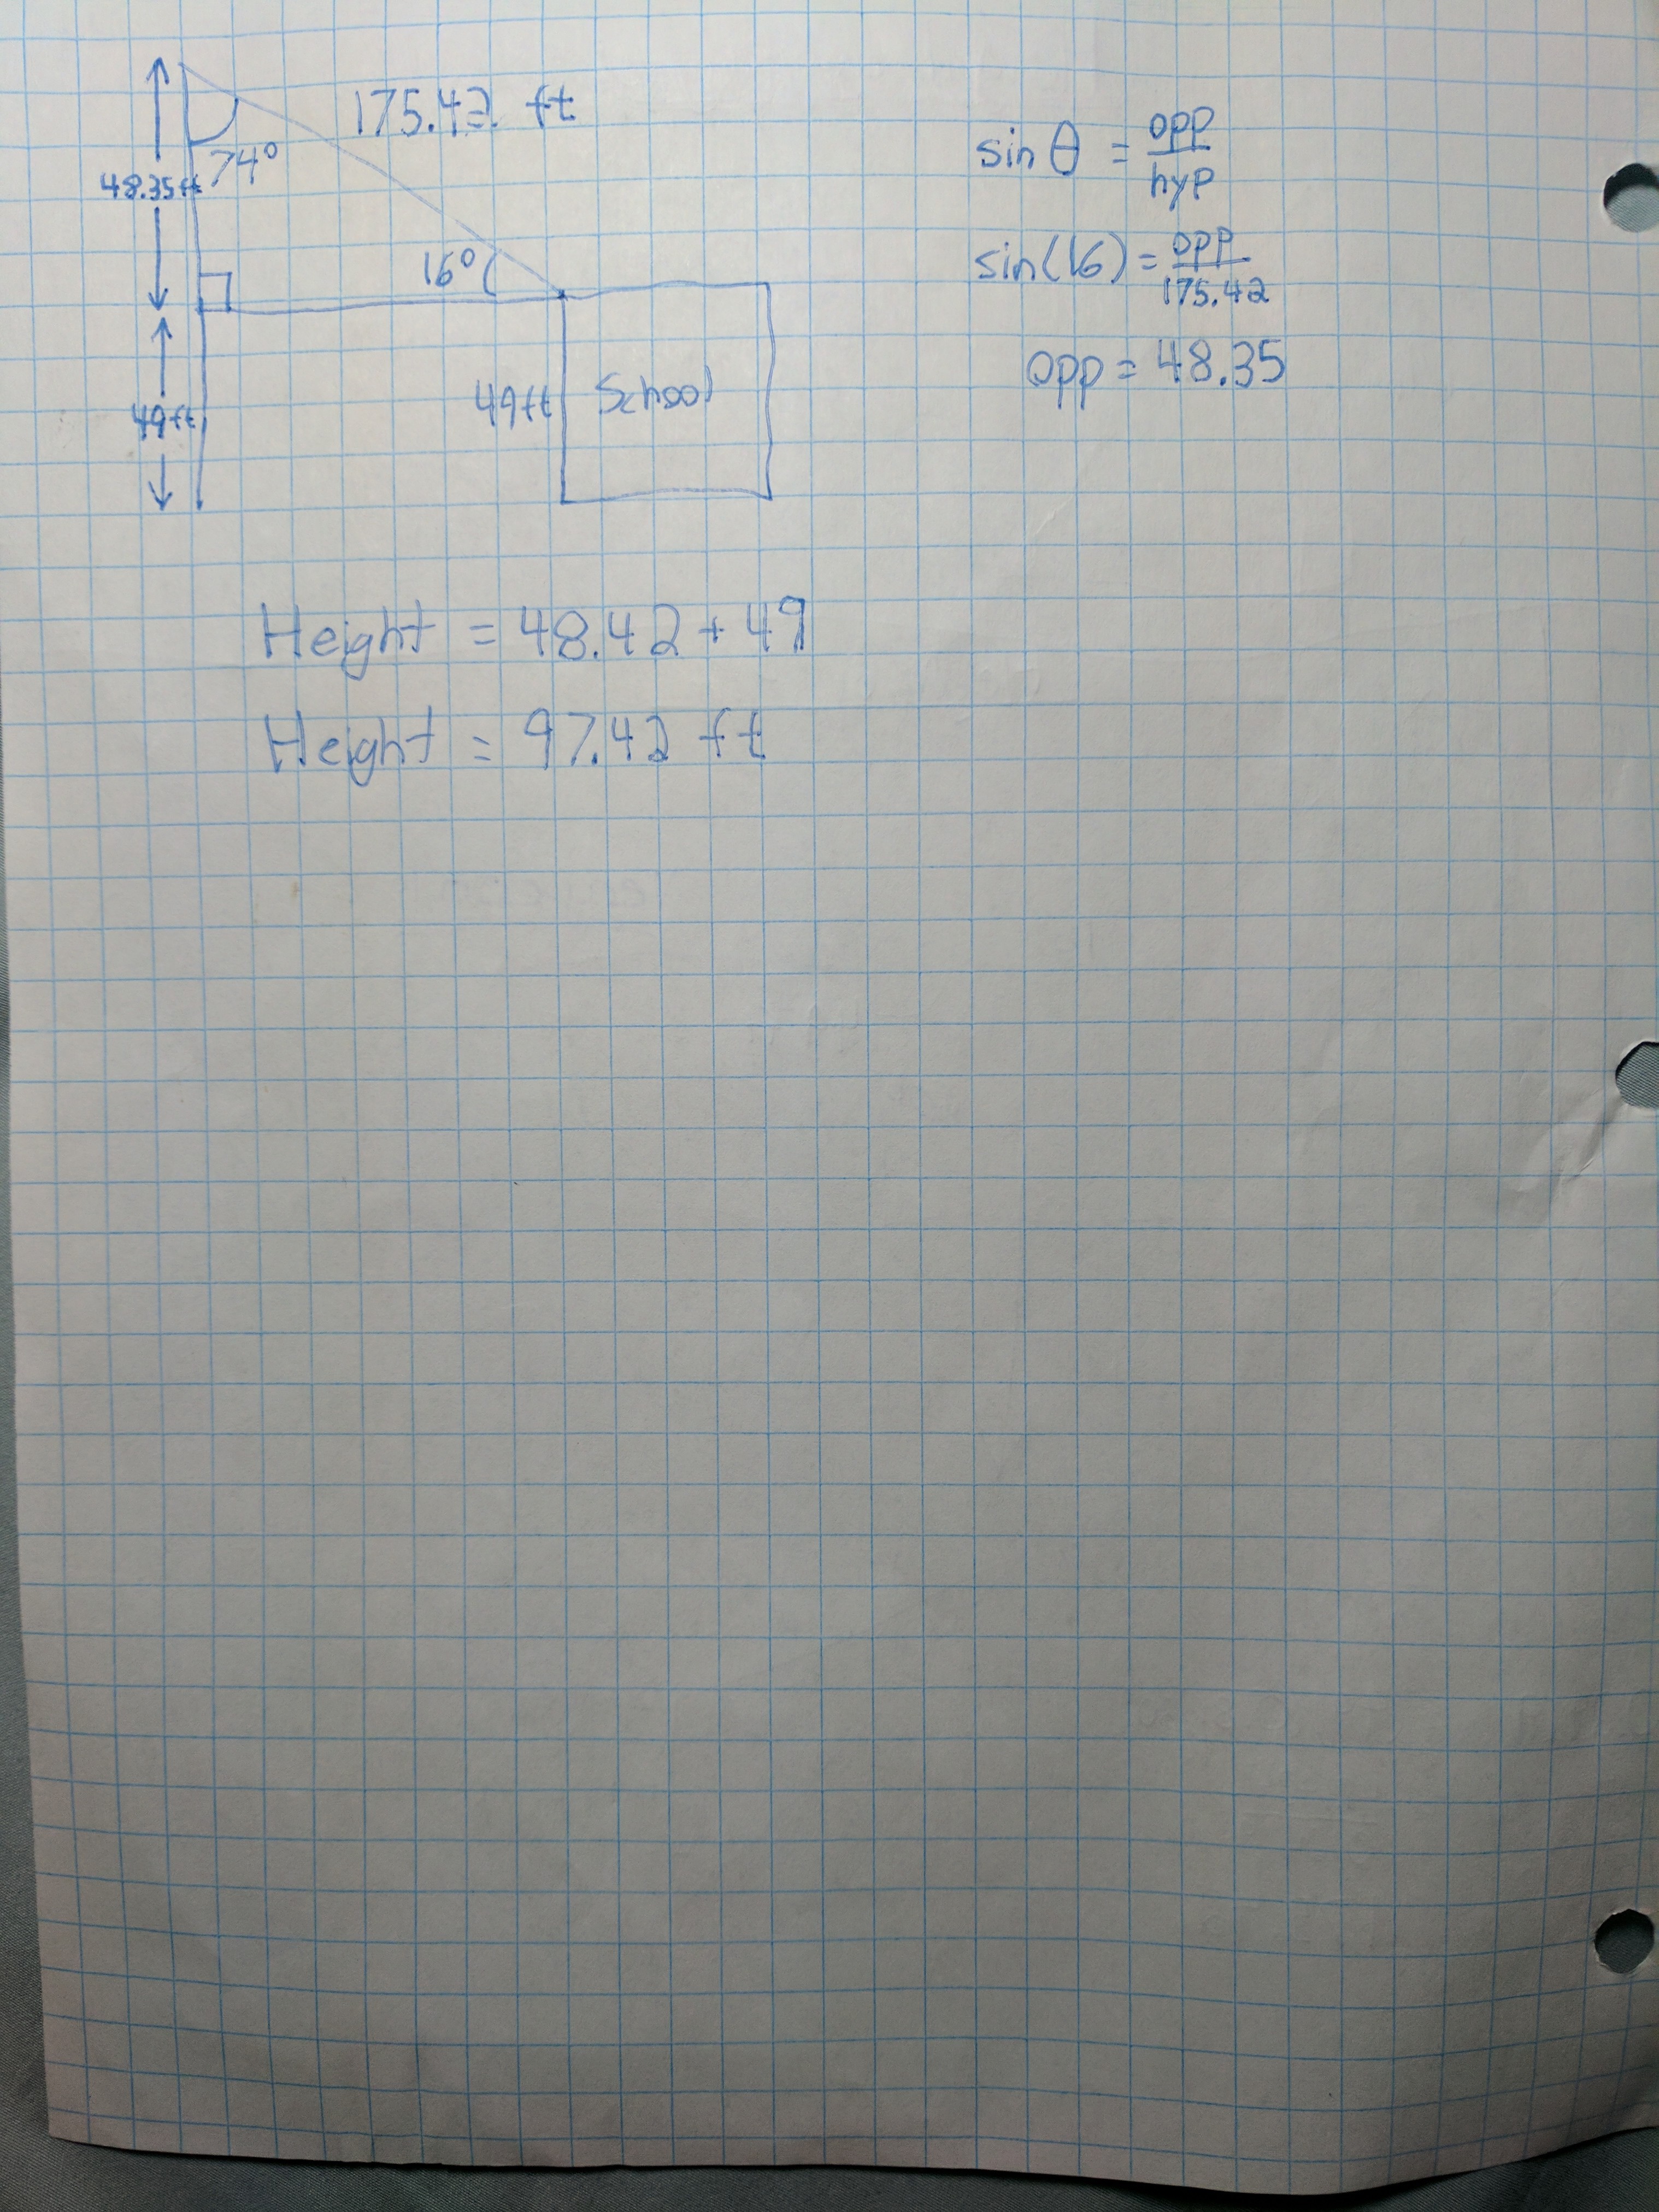 175.42 ft
74°
48.35ft
16°
49ft
School
49ft
sin θ = opp/hyp
sin(16) = opp/175.42
opp = 48.35
Height = 48.42 + 49
Height = 97.42 ft